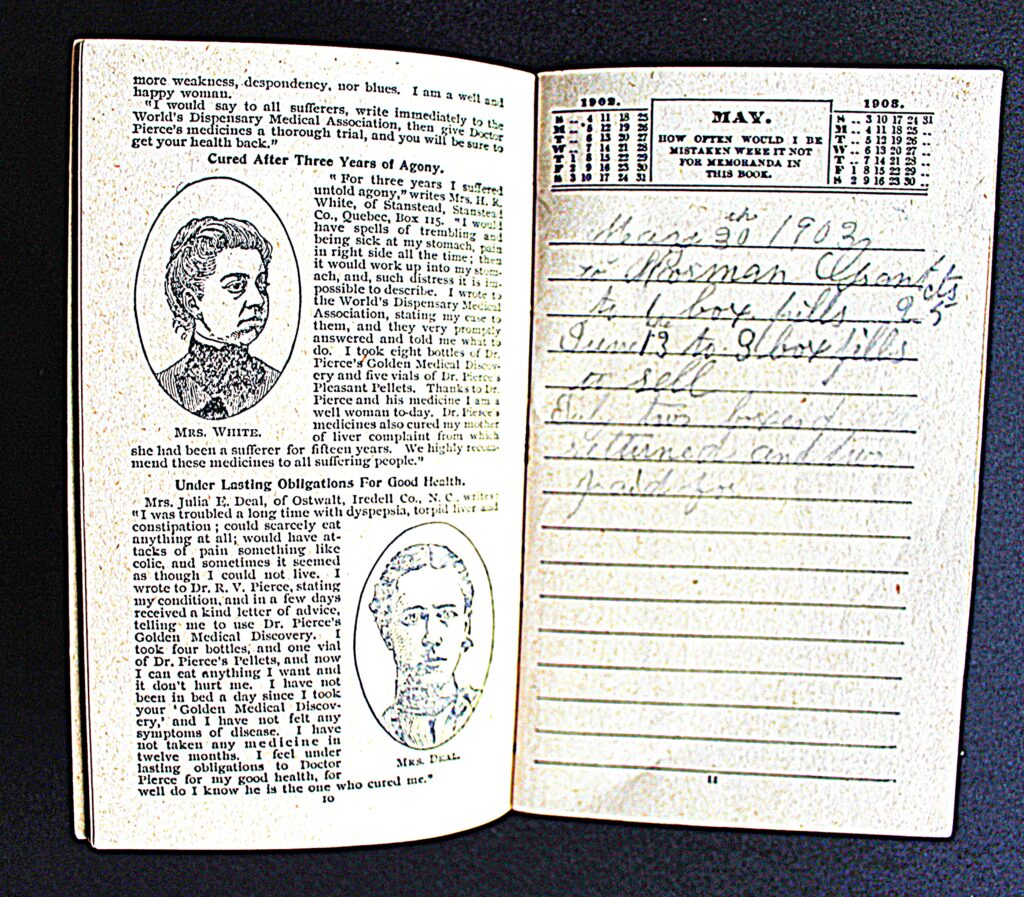 more weakness, despondency, nor blues. I am a well and
happy woman.
"I would say to all sufferers, write immediately to the
World's Dispensary Medical Association, then give Doctor
Pierce's medicines a thorough trial, and you will be sure to
get your health back."
Cured After Three Years of Agony.
"For three years I suffered
untold agony," writes Mrs. H. R.
White, of Stanstead, Stanstead
Co., Quebec, Box 115. "I would
have spells of trembling and
being sick at my stomach, pain
in right side all the time; then
it would work up into my stom-
ach, and, such distress it is im-
possible to describe. I wrote to
the World's Dispensary Medical
Association, stating my case to
them, and they very promptly
answered and told me what to
do. I took eight bottles of Dr.
Pierce's Golden Medical Discov-
ery and five vials of Dr. Pierce's
Pleasant Pellets. Thanks to Dr.
Pierce and his medicine I am a
well woman to-day. Dr. Pierce's
medicines also cured my mother
of liver complaint from which
she had been a sufferer for fifteen years. We highly recom-
mend these medicines to all suffering people."
MRS. WHITE.
Under Lasting Obligations For Good Health.
Mrs. Julia E. Deal, of Ostwalt, Iredell Co., N. C., writes:
"I was troubled a long time with dyspepsia, torpid liver and
constipation; could scarcely eat
anything at all; would have at-
tacks of pain something like
colic, and sometimes it seemed
as though I could not live. I
wrote to Dr. R. V. Pierce, stating
my condition, and in a few days
received a kind letter of advice,
telling me to use Dr. Pierce's
Golden Medical Discovery. I
took four bottles, and one vial
of Dr. Pierce's Pellets, and now
I can eat anything I want and
it don't hurt me. I have not
been in bed a day since I took
your 'Golden Medical Discov-
ery,' and I have not felt any
symptoms of disease. I have
not taken any medicine in
twelve months. I feel under
lasting obligations to Doctor
Pierce for my good health, for
well do I know he is the one who cured me."
MRS. DEAL.
10
1902.
S .. 4 11 18 25
M .. 5 12 19 26
T .. 6 13 20 27
W .. 7 14 21 28
T 1 8 15 22 29
F 2 9 16 23 30
S 3 10 17 24 31
MAY.
HOW OFTEN WOULD I BE
MISTAKEN WERE IT NOT
FOR MEMORANDA IN
THIS BOOK.
1903.
S .. 3 10 17 24 31
M .. 4 11 18 25 ..
T .. 5 12 19 26 ..
W .. 6 13 20 27 ..
T .. 7 14 21 28 ..
F 1 8 15 22 29 ..
S 2 9 16 23 30 ..
May 20th 1903
Norman Grant cts
to 1 box pills 25
June the 13 to 3 box pills
to sell
two
returned and two
paid for
11